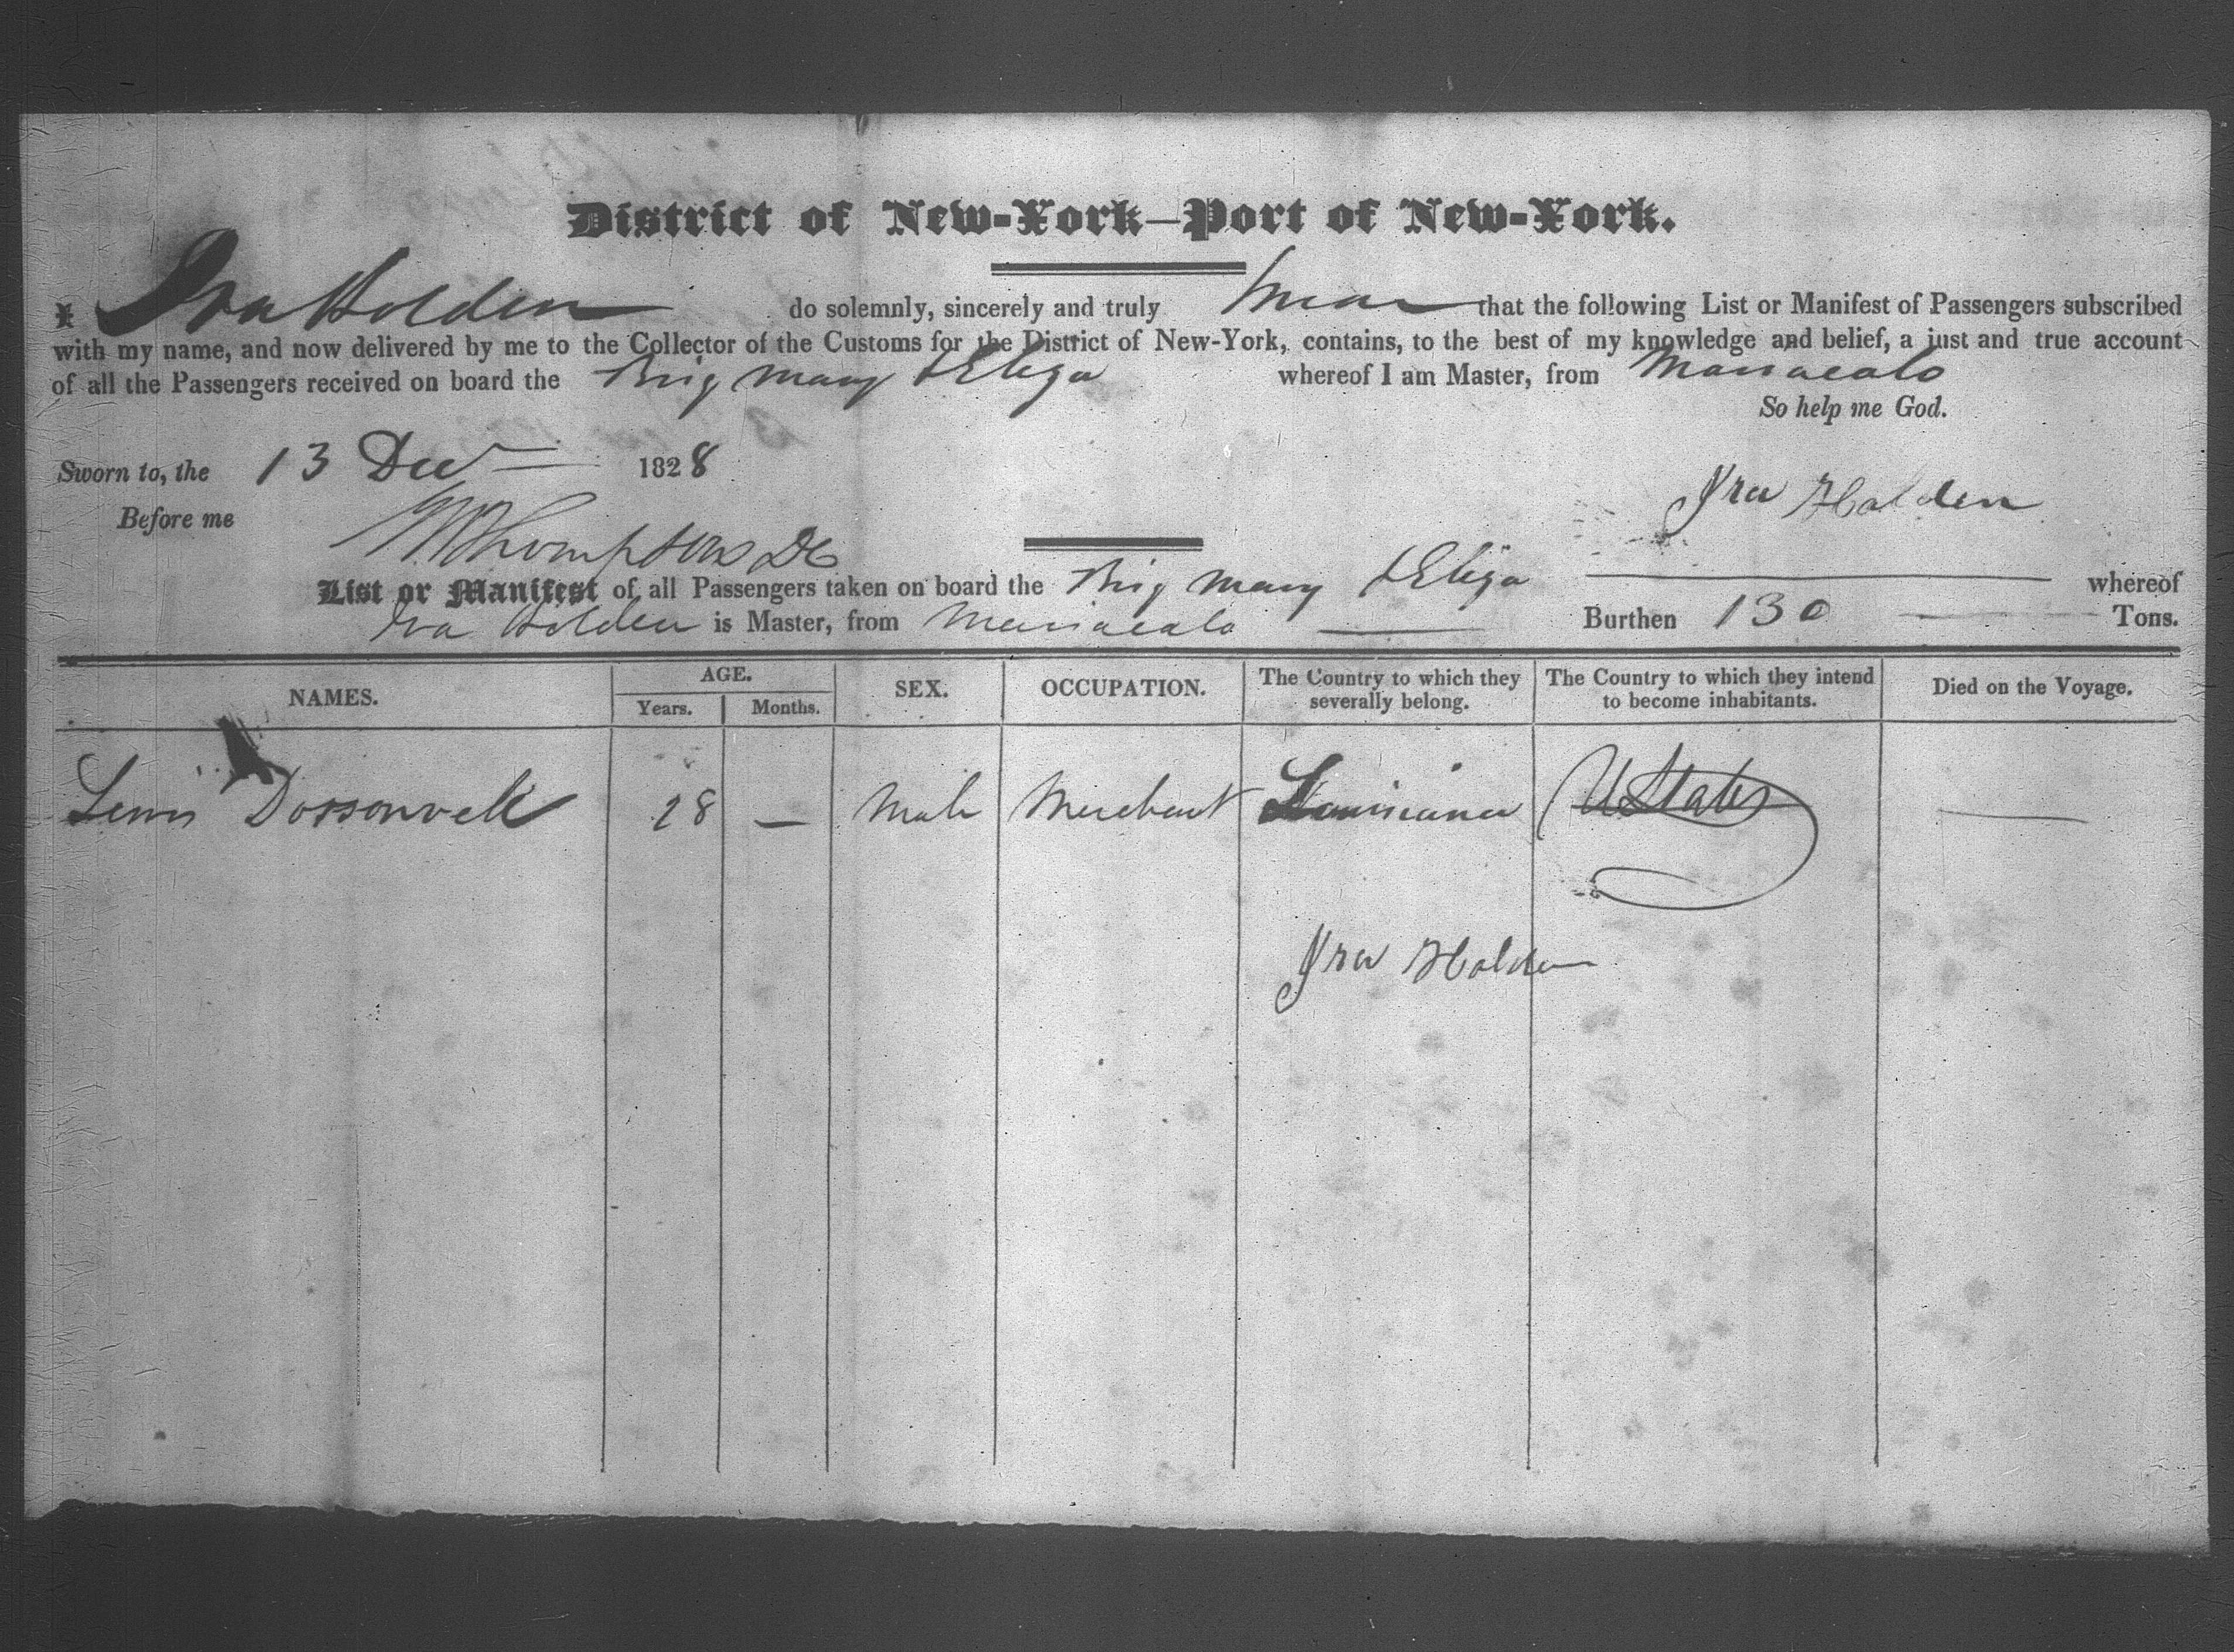 District of New-York—Port of New-York.
I Ira Holden do solemnly, sincerely and truly swear that the following List or Manifest of Passengers subscribed
with my name, and now delivered by me to the Collector of the Customs for the District of New-York, contains, to the best of my knowledge and belief, a just and true account
of all the Passengers received on board the Brig Mary & Eliza whereof I am Master, from Maracaibo
So help me God.
Sworn to, the 13 Decr 1828
Ira Holden
Before me
Thompson DC
List or Manifest of all Passengers taken on board the Brig Mary & Eliza whereof
Ira Holden is Master, from Maracaibo Burthen 130 Tons.
NAMES. AGE. SEX. OCCUPATION. The Country to which they severally belong. The Country to which they intend to become inhabitants. Died on the Voyage.
Years. Months.
Lewis Dossonvell 28 — Male Merchant Louisiana UStates —
Ira Holden